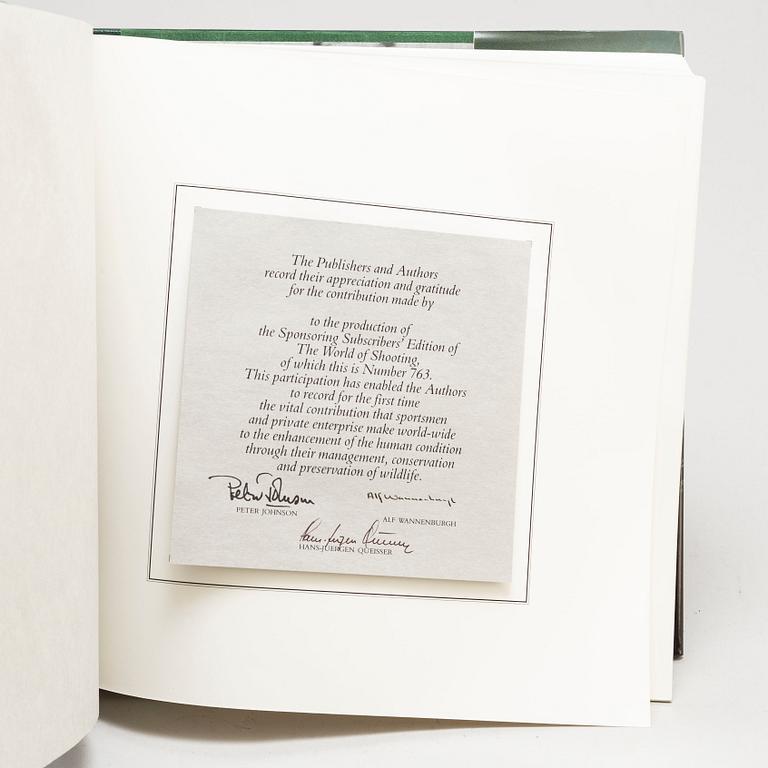 The Publishers and Authors
record their appreciation and gratitude
for the contribution made by
to the production of
the Sponsoring Subscribers' Edition of
The World of Shooting,
of which this is Number 763.
This participation has enabled the Authors
to record for the first time
the vital contribution that sportsmen
and private enterprise make world-wide
to the enhancement of the human condition
through their management, conservation
and preservation of wildlife.
Peter Johnson
Alf Wannenburgh
PETER JOHNSON
ALF WANNENBURGH
Hans-Jürgen Queisser
HANS-JUERGEN QUEISSER